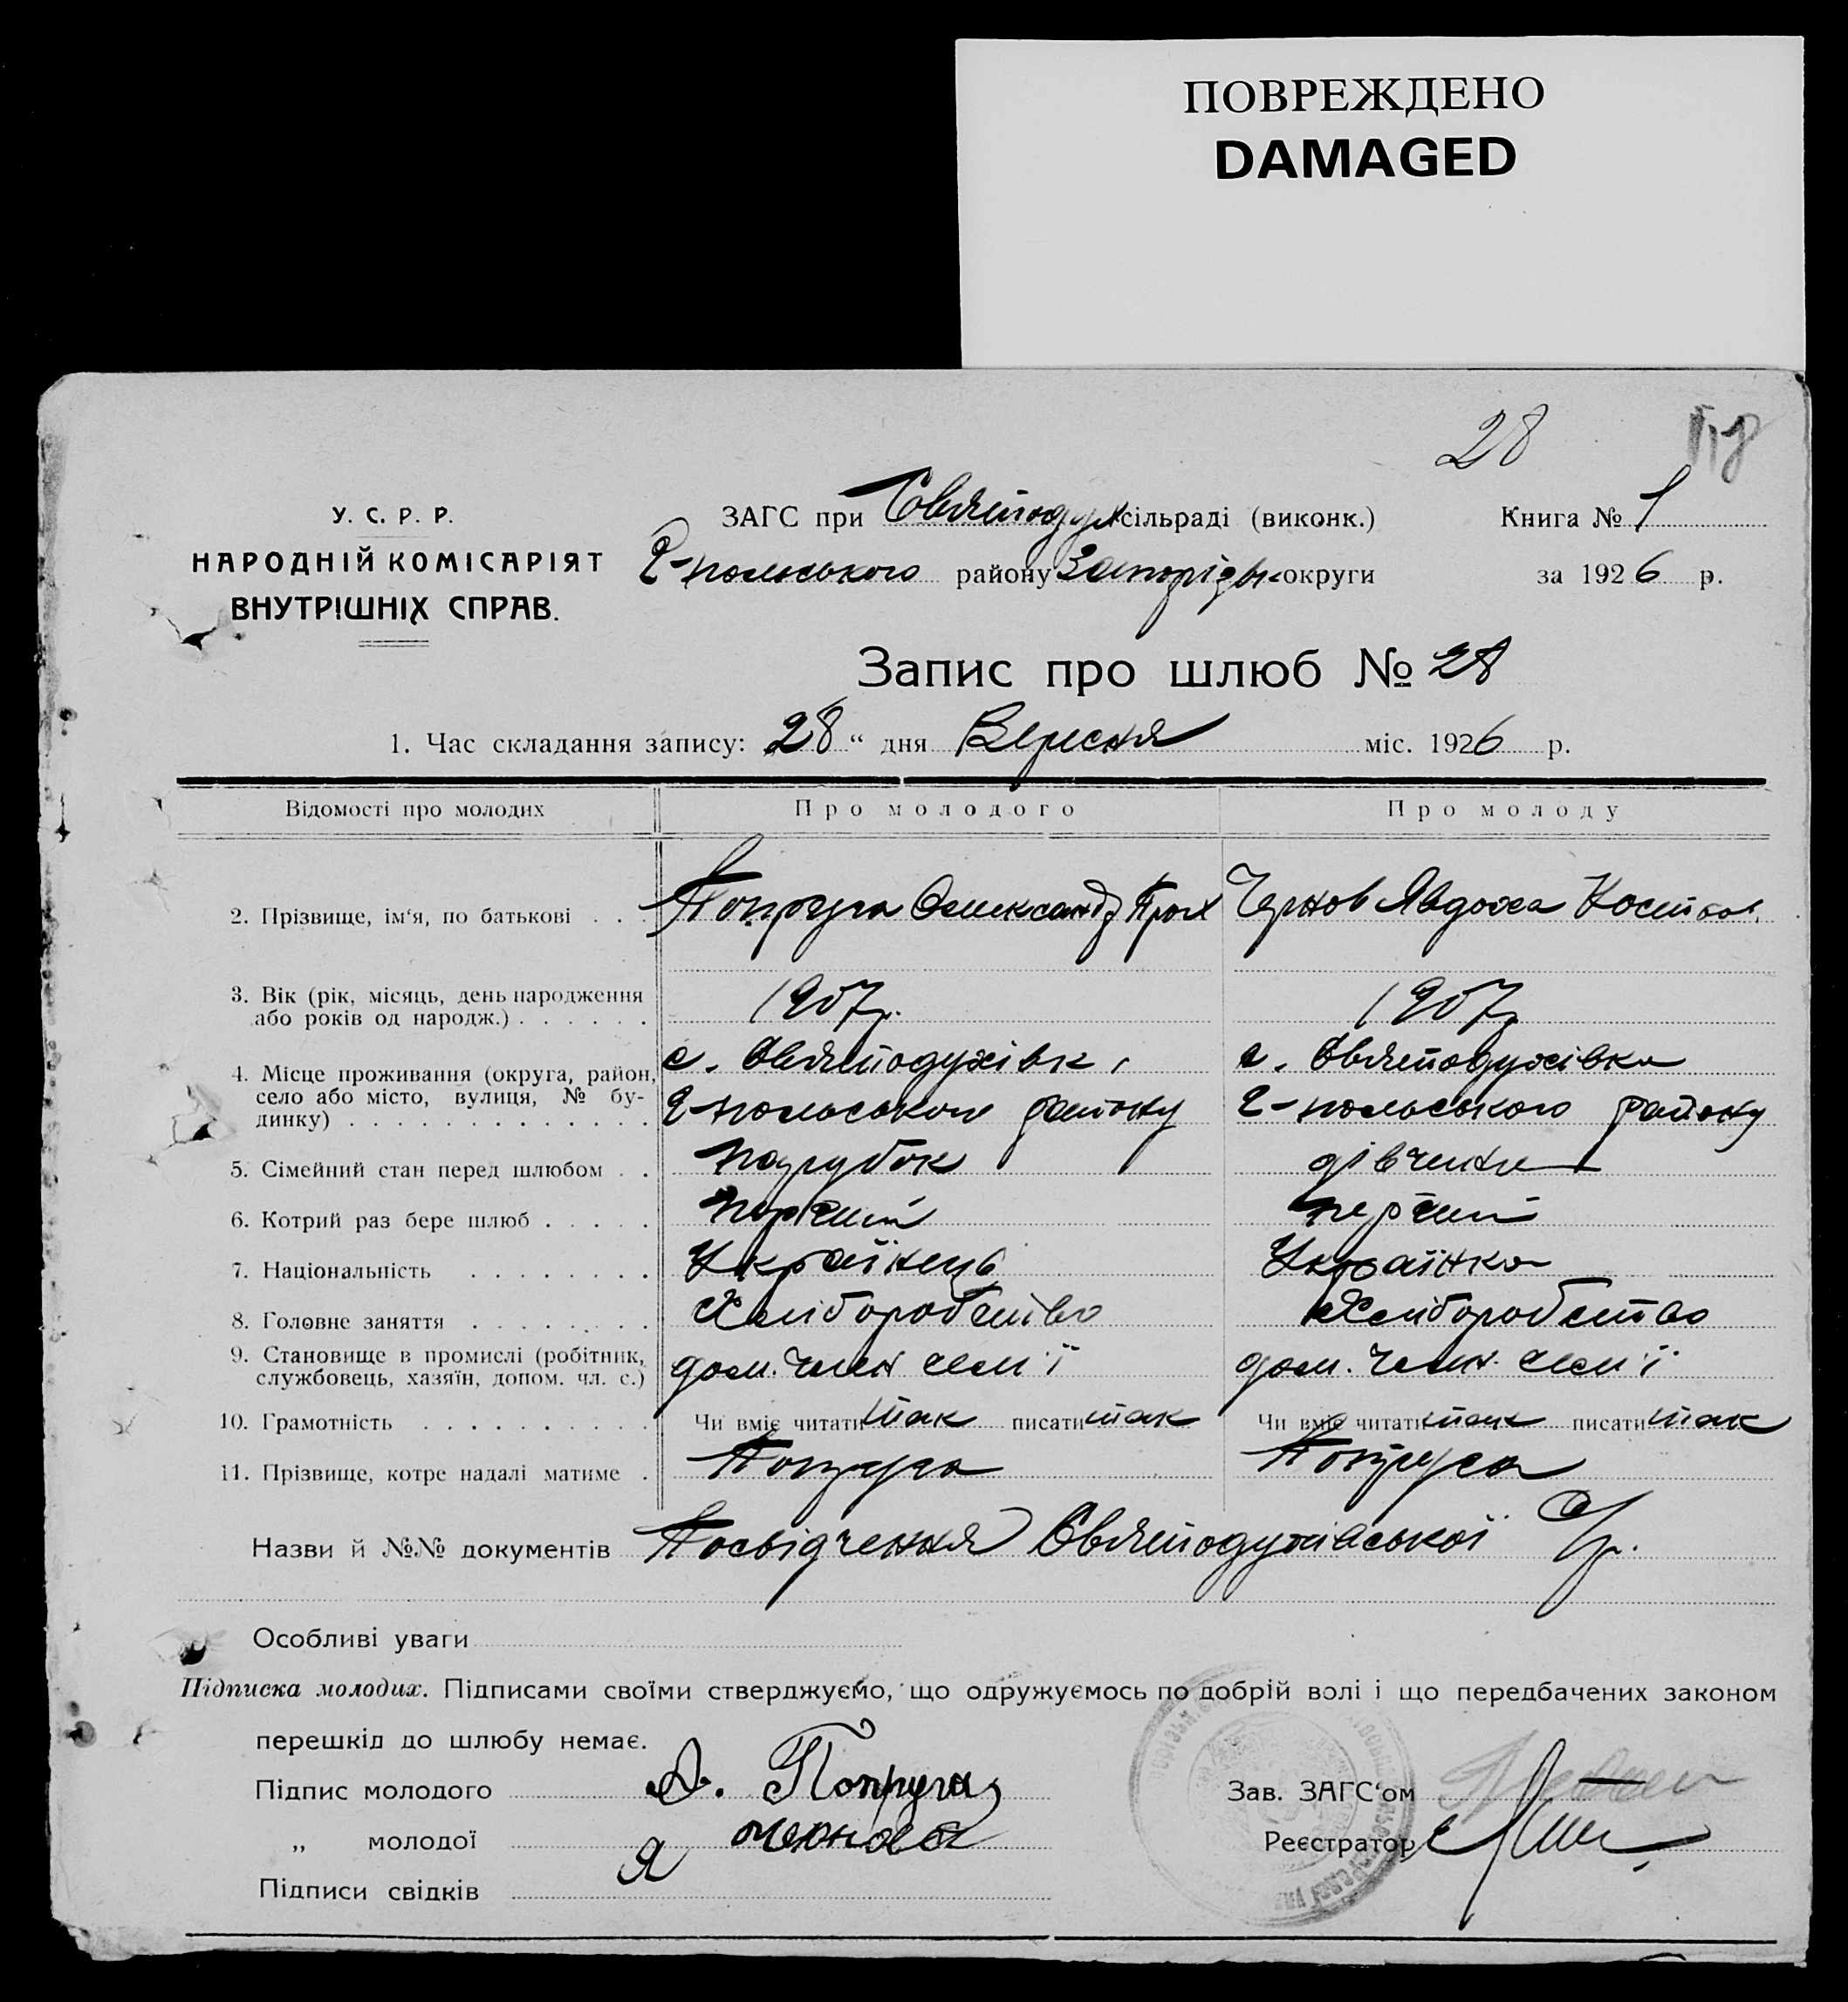 ПОВРЕЖДЕНО
DAMAGED
28
У. С. Р. Р.
НАРОДНІЙ КОМІСАРІЯТ
ВНУТРІШНІХ СПРАВ.
ЗАГС при Святодух сільраді (виконк.)
Г-польського району Запорізьк округи
Книга № 1
за 1926 р.
Запис про шлюб № 28
1. Час складання запису: 28 “ дня Вересня міс. 1926 р.
Відомості про молодих Про молодого Про молоду
2. Прізвище, ім‘я, по батькові . . Попруга Олександр Прох Чернов Явдоха Костян.
3. Вік (рік, місяць, день народження або років од народж.) . . . . . . 1907р. 1907р
4. Місце проживання (округа, район, село або місто, вулиця, № будинку) . . . . . . . . . . . . . с. Святодухівк Г-польського району с. Святодухівка Г-польського району
5. Сімейний стан перед шлюбом . . парубок дівчина
6. Котрий раз бере шлюб . . . . . перший перший
7. Національність . . . . . . . . Українець Українка
8. Головне заняття . . . . . . . . Хліборобство Хліборобство
9. Становище в промислі (робітник, службовець, хазяїн, допом. чл. с.) дом. член сем'ї дом. член сем'ї
10. Грамотність . . . . . . . . . . Чи вміє читати так писати так Чи вміє читати так писати так
11. Прізвище, котре надалі матиме . Попруга Попруга
Назви й №№ документів Посвідчення Святодухівської С/р.
Особливі уваги
Підписка молодих. Підписами своїми стверджуємо, що одружуємось по добрій волі і що передбачених законом
перешкід до шлюбу немає.
Підпис молодого А. Попруга
Зав. ЗАГС‘ом
„ молодої Я Чернова
Реєстратор
Підписи свідків